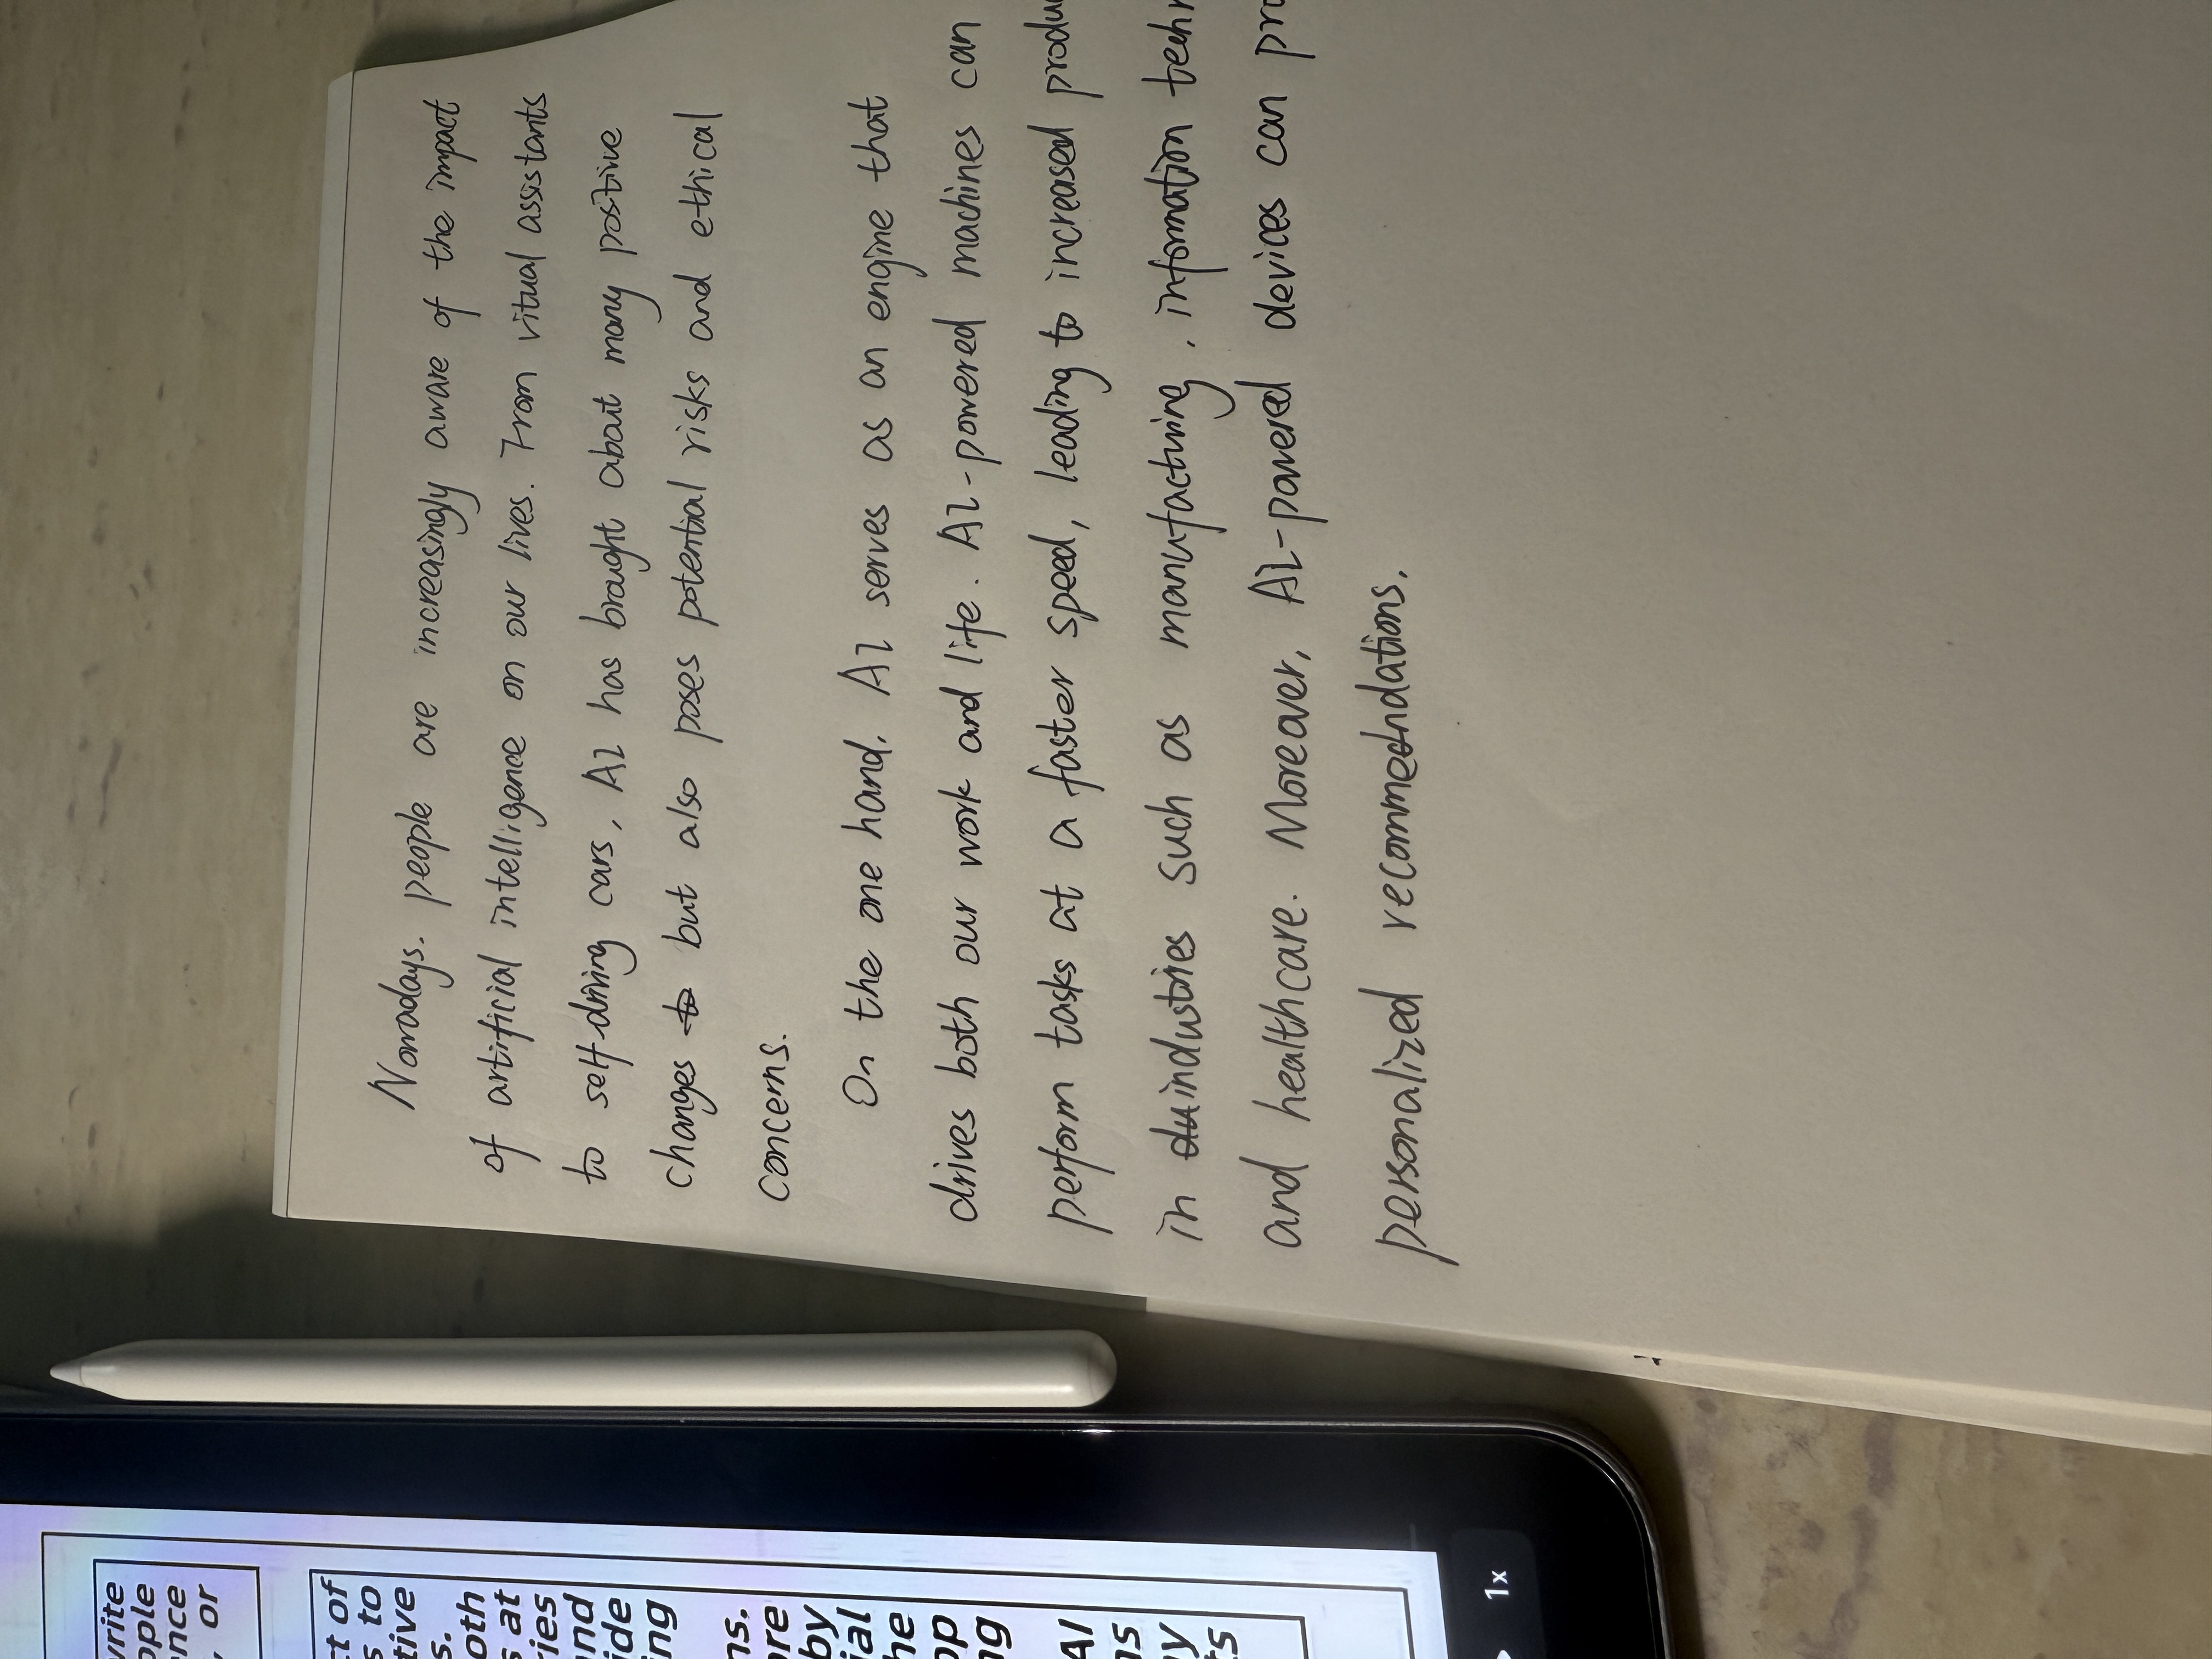 Nowadays. people are increasingly aware of the impact
of artificial intelligence on our lives. From vitual assistants
to self-driving cars, AI has brought about many positive
changes but also poses potential risks and ethical
concerns.
On the one hand. AI serves as an engine that
drives both our work and life. AI-powered machines can
perform tasks at a faster speed, leading to increased produ
in industries such as manufacturing, information techn
and healthcare. Moreover, AI-powered devices can pro
personalized recommendations.
write
ople
nce
, or
ct of
s to
tive
s.
oth
s at
ries
and
ide
ing
ns.
ore
by
ial
he
op
ng
AI
ns
y
ts
1x